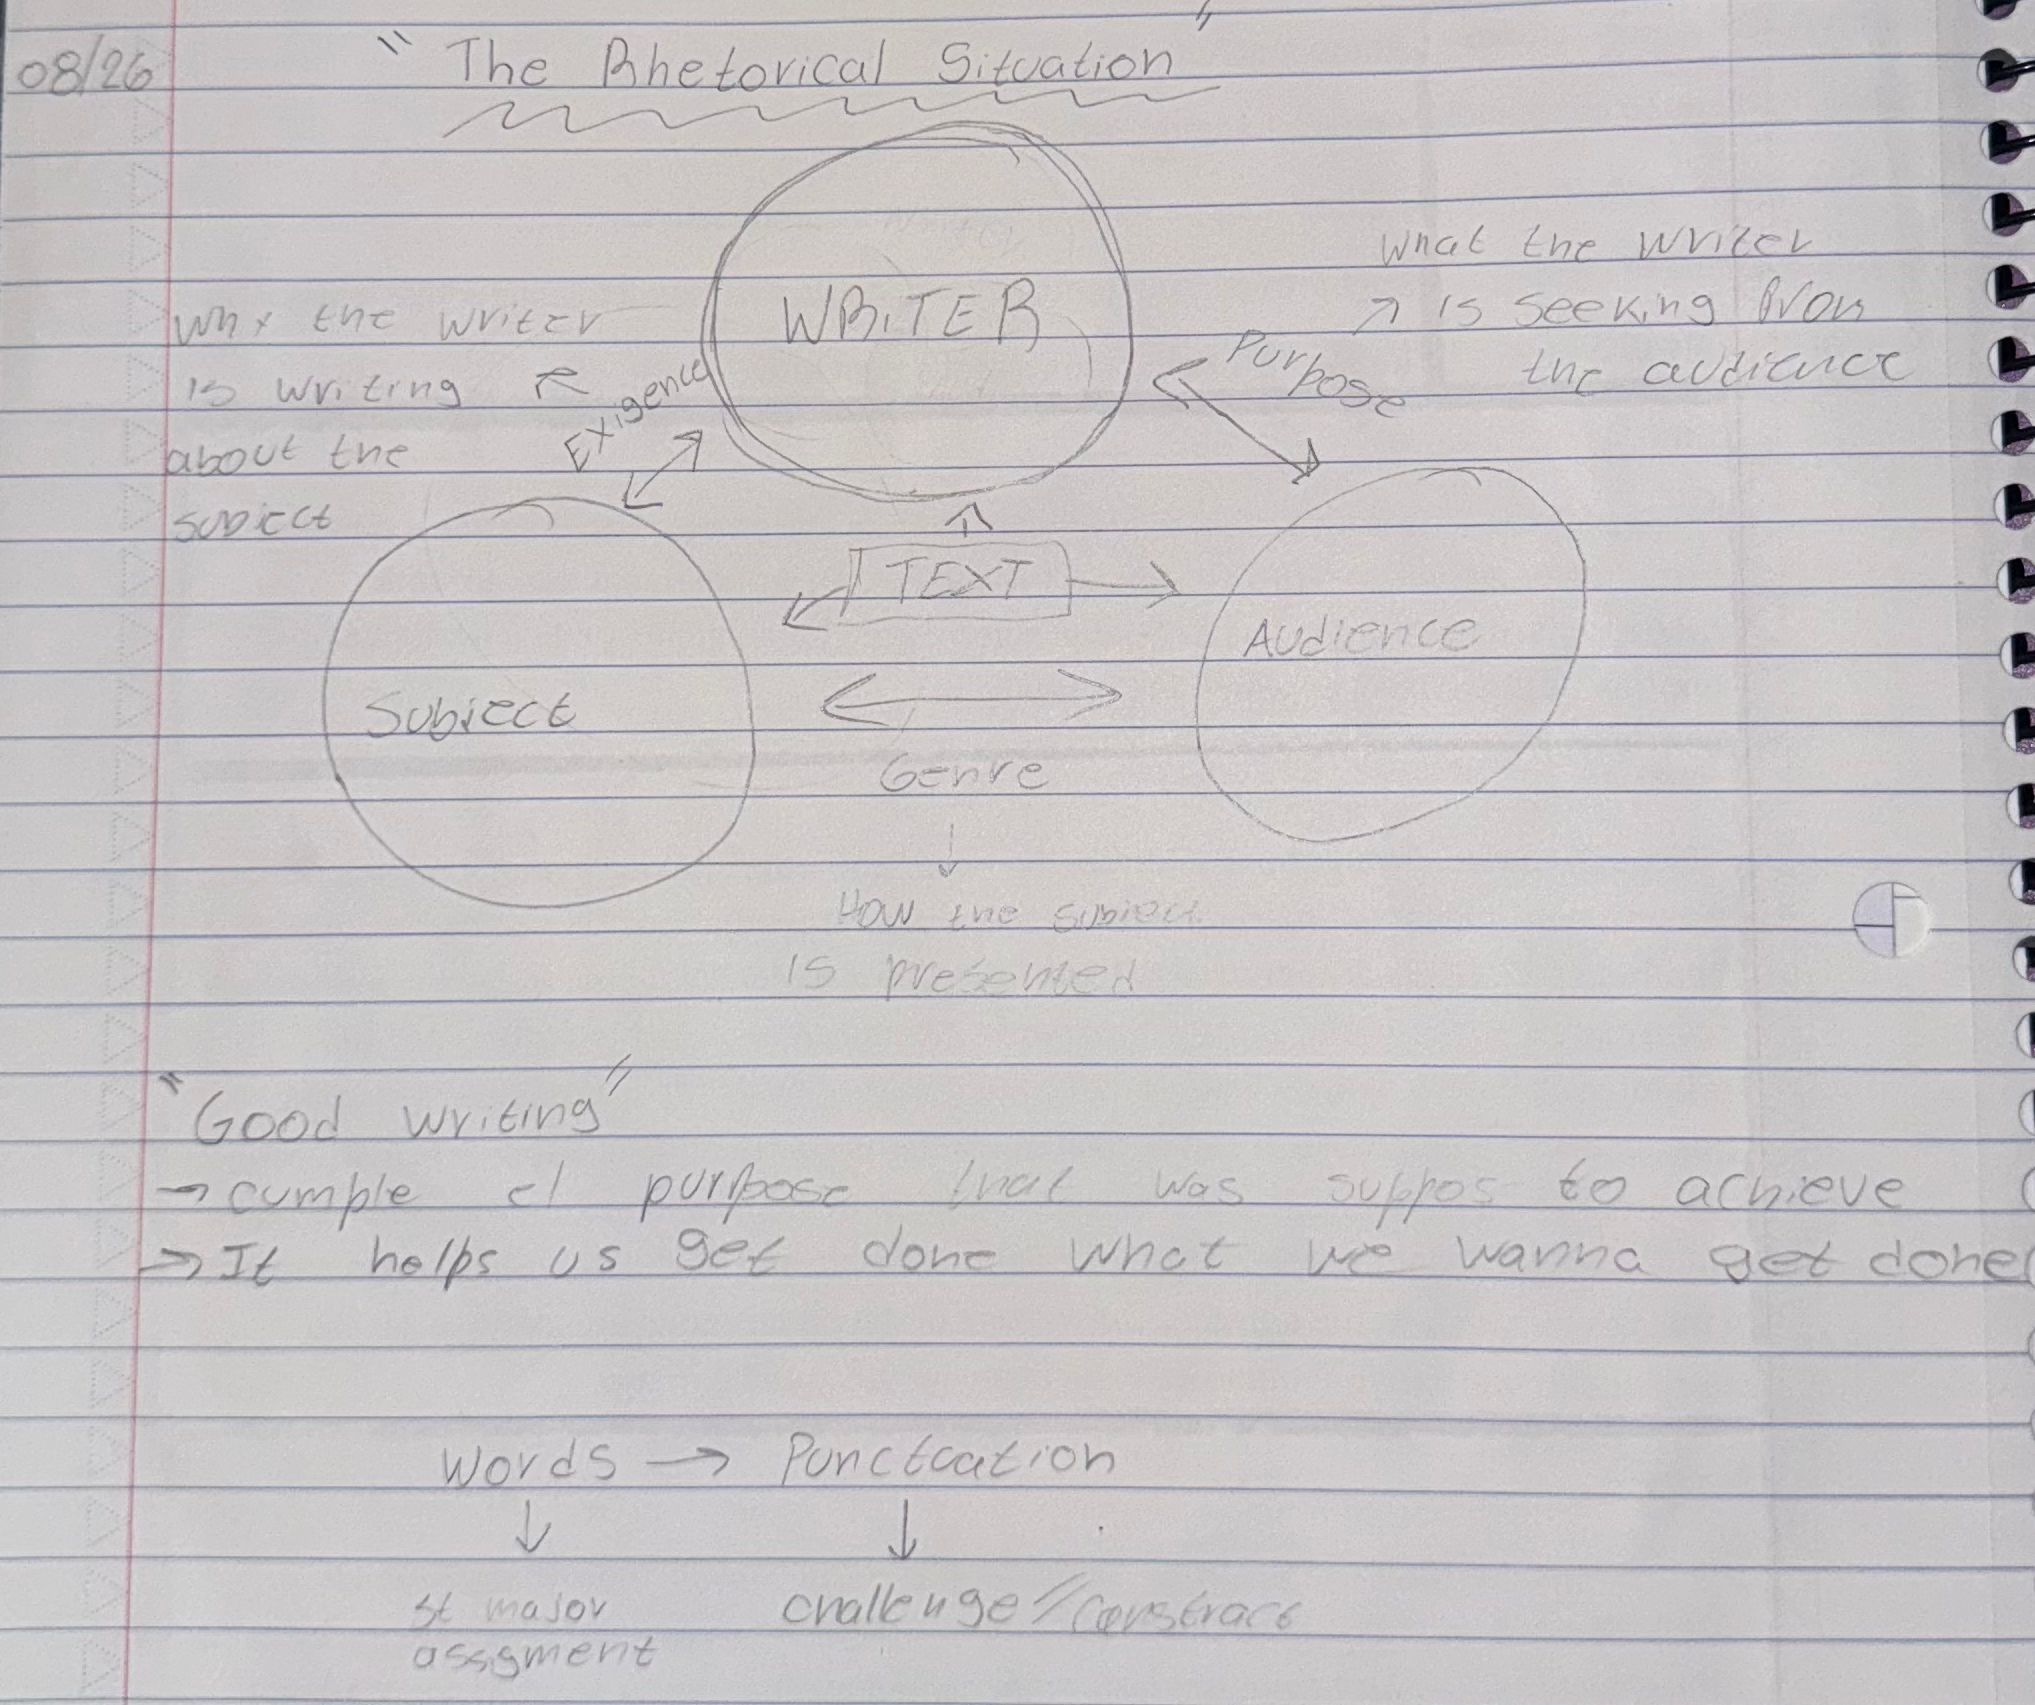 08/26
"The Rhetorical Situation"
WRITER
what the writer
is seeking from
the audience
why the writer
is writing
about the
subject
Exigence
Purpose
TEXT
Audience
Subject
Genre
How the subject
is presented
"Good writing"
→ cumple el purpose that was suppos to achieve
→ It helps us get done what we wanna get done
Words → Punctuation
st major
assgment
challenge /